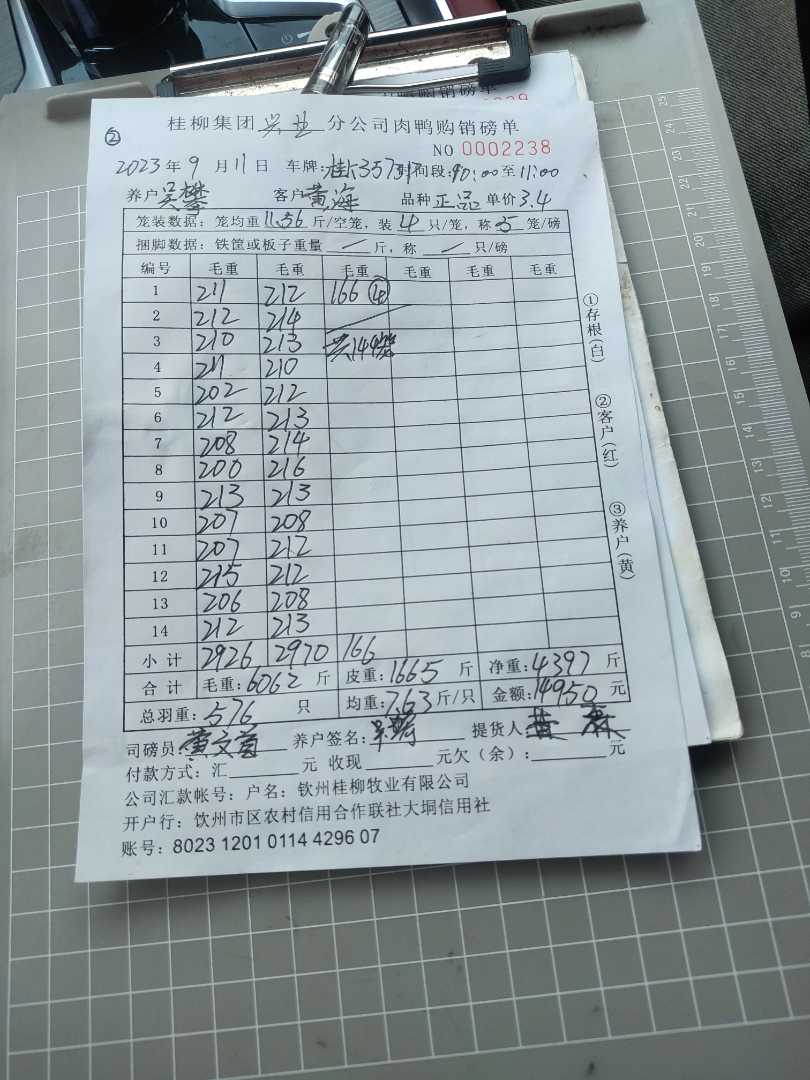 肉鸭购销磅单
②
桂柳集团兴业分公司肉鸭购销磅单
NO 0002238
2023年9月11日 车牌:桂 时间段:10:00至11:00
养户吴攀 客户黄海 品种正品 单价3.4
笼装数据:笼均重11.56斤/空笼,装4只/笼,称5笼/磅
捆脚数据:铁筐或板子重量/斤,称/只/磅
编号 毛重 毛重 毛重 毛重 毛重 毛重
1 211 212 166 ④
2 212 214
3 210 213 共144笼
4 211 210
5 202 212
6 212 213
7 208 214
8 200 216
9 213 213
10 207 208
11 207 212
12 215 212
13 206 208
14 212 213
小计 2926 2970 166
合计 毛重:6062斤 皮重:1665斤 净重:4397斤
总羽重:576只 均重:7.63斤/只 金额:14950元
司磅员:黄文 养户签名: 提货人
付款方式:汇 元 收现 元欠(余): 元
公司汇款帐号:户名:钦州桂柳牧业有限公司
开户行:钦州市区农村信用合作联社大垌信用社
账号:8023 1201 0114 4296 07
①存根(白)
②客户(红)
③养户(黄)
25
20
19
18
17
16
15
14
13
12
11
10
9
8